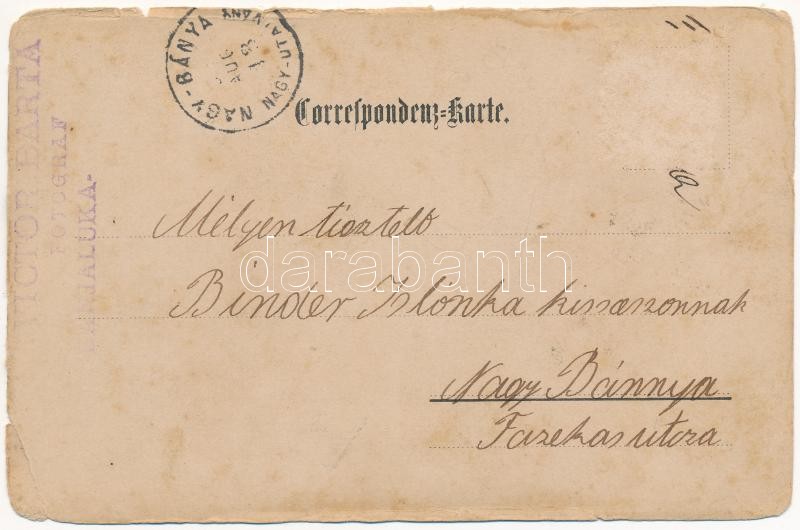 NAGY-BÁNYA
AUG
18
NAGY-UTALVÁNY
Correspondenz-Karte.
VICTOR BARTA
FOTOGRAF
BANJALUKA-
Mélyen tisztelt
Binder Ilonka kissaszonnak
Nagy Bánnya
Fazekas utcza
darabanth